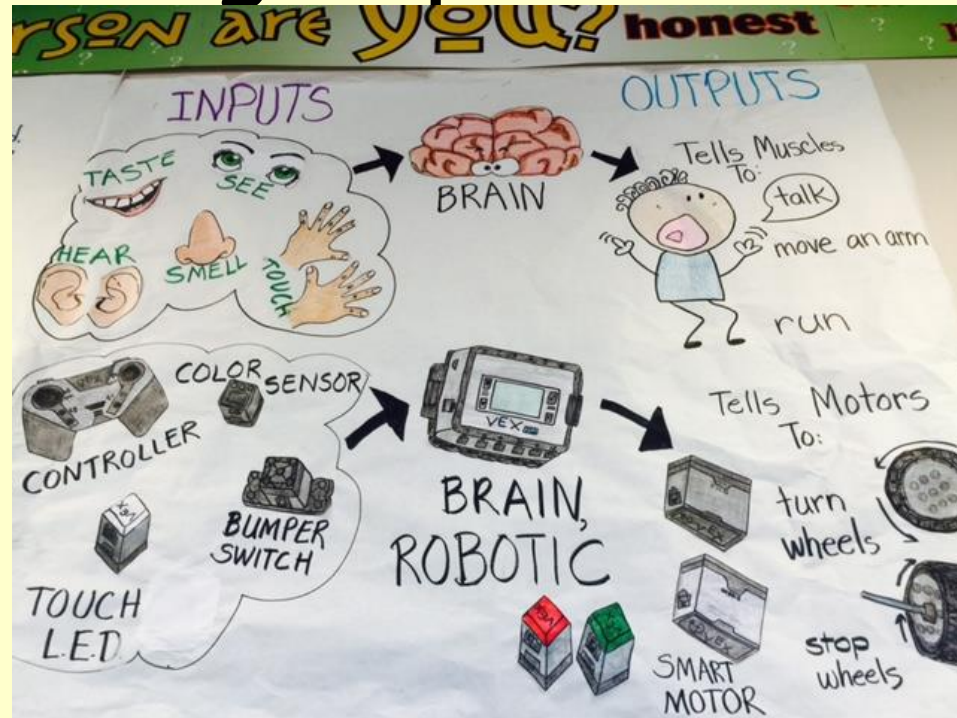 rson are you? honest
INPUTS
OUTPUTS
TASTE
SEE
HEAR
SMELL
TOUCH
BRAIN
Tells Muscles
To:
talk
move an arm
run
CONTROLLER
COLOR SENSOR
TOUCH
L.E.D.
BUMPER
SWITCH
VEX
BRAIN,
ROBOTIC
Tells Motors
To:
turn
wheels
stop
wheels
SMART
MOTOR